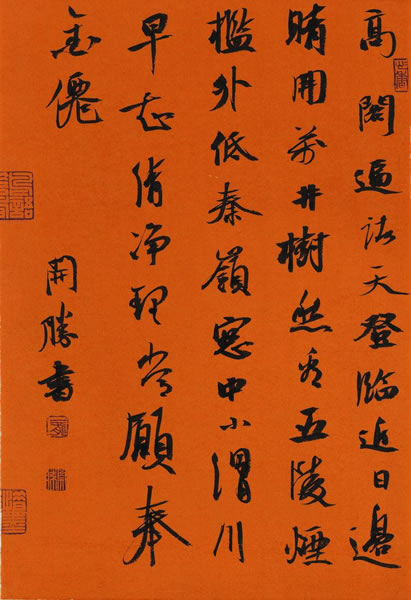 高閣逼諸天登臨近日邊
晴開萬井樹愁看五陵煙
檻外低秦嶺窓中小渭川
早知清净理常願奉
金僊
開勝書